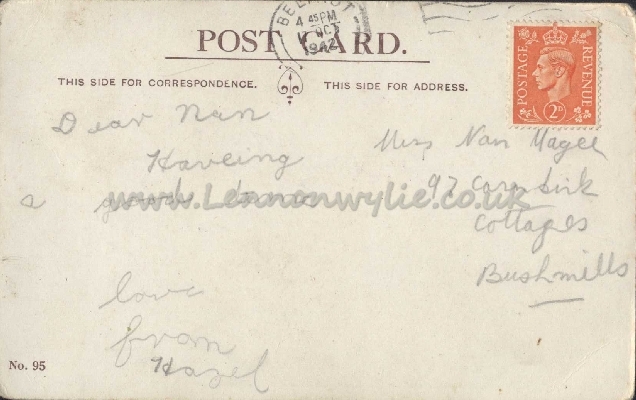 BELFAST
4 45 PM
OCT
1942
POST CARD.
THIS SIDE FOR CORRESPONDENCE.
THIS SIDE FOR ADDRESS.
POSTAGE
REVENUE
2D
Dear Nan
Haveing
a good time
love
from
Hazel
Miss Nan Magee
97
Cottages
Bushmills
www.Lennonwylie.co.uk
No. 95